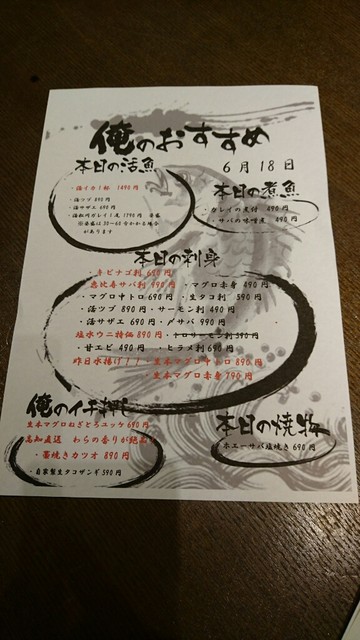 俺のおすすめ
6月18日
本日の活魚
・活イカ1杯 1490円
・活ツブ 890円
・活サザエ 690円
・活松川ガレイ1尾 1790円
※
があります
本日の煮魚
・カレイの煮付 490円
・サバの味噌煮 490円
本日の刺身
・キビナゴ刺 650円
・恵比寿サバ刺 990円 ・マグロ赤身 490円
・マグロ中トロ 690円 ・生タコ刺 590円
・活ツブ 890円 ・サーモン刺 490円
・活サザエ 690円 ・〆サバ 990円
塩水ウニ特価 890円 ・トロサーモン刺 590円
・甘エビ 490円 ・ヒラメ刺 690円
昨日水揚げ!! 生本マグロ中トロ 890円
生本マグロ赤身 790円
俺のイチ押し
生本マグロねぎとろユッケ 690円
高知直送 わらの香りが絶品
・藁焼きカツオ 890円
・自家製生タコザンギ 590円
本日の焼物
・ホエーサバ塩焼き 690円